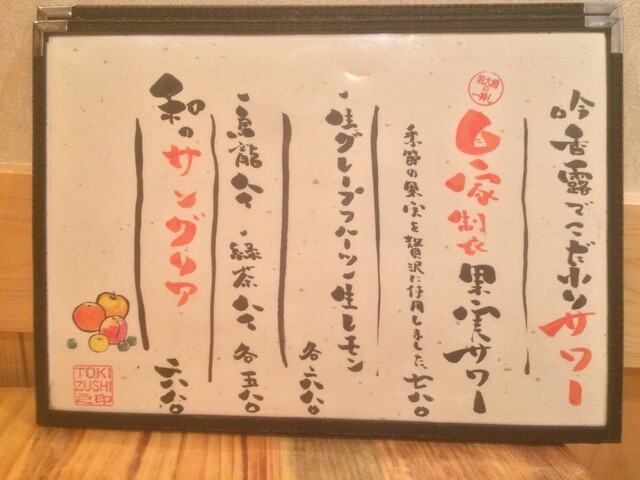 吟香露でこだわりサワー
若大将の一押し
自家製果実サワー
季節の果実を贅沢に使用しました 七八〇
・生グレープフルーツ・生レモン 各六八〇
・烏龍ハイ・緑茶ハイ 各五八〇
和のサングリア 六八〇
TOKI
ZUSHI
之印